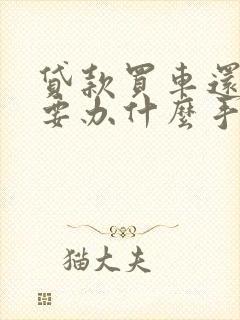 貸款買車還
要办什麼手
猫大夫